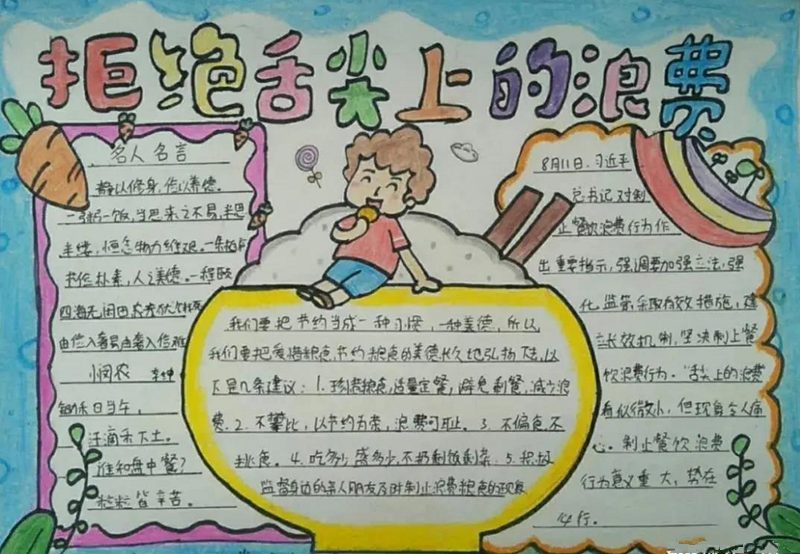 拒绝舌尖上的浪费
名人名言
静以修身,俭以养德。
一粥一饭,当思来之不易,半思
半缕,恒念物力维艰。一
书俭朴素,人之美德。一
四海无闲田农夫犹
由俭入奢易由奢入俭难
悯农 李绅
锄禾日当午,
汗滴禾下土。
谁知盘中餐?
粒粒皆辛苦。
我们要把节约当成一种习惯,一种美德,所以,
我们要把爱惜粮食节约粮食的美德长久地弘扬下去,以
下是几条建议:1.珍惜粮食,适量定餐,避免剩餐,减少浪
费.2.不攀比,以节约为荣,浪费可耻。3.不偏食不
挑食。4.吃多少,盛多少,不扔剩饭剩菜.5.积极
监督身边的亲人朋友及时制止浪费粮食的现象
8月11日,习近平
总书记对制
止餐饮浪费行为作
出重要指示,强调要加强立法,强
化监管采取有效措施,建
立长效机制,坚决制止餐
饮浪费行为。"舌尖上的浪费
看似微小,但现象令人痛
心。制止餐饮浪费
行为意义重大,势在
必行。